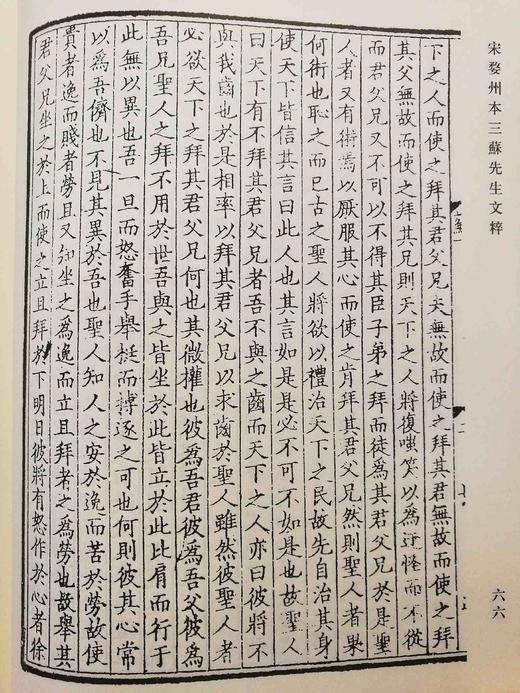 宋婺州本三蘇先生文粹
六六
下之人而使之拜其君父兄夫無故而使之拜其君無故而使之拜
其父無故而使之拜其兄則天下之人將復嗤笑以為迂怪而不從
而君父兄又不可以不得其臣子弟之拜而徒為其君父兄於是聖
人者又有術焉以厭服其心而使之肯拜其君父兄然則聖人者果
何術也恥之而已古之聖人將欲以禮治天下之民故先自治其身
使天下皆信其言曰此人也其言如是是必不可不如是也故聖人
曰天下有不拜其君父兄者吾不與之齒而天下之人亦曰彼將不
與我齒也於是相率以拜其君父兄以求齒於聖人雖然彼聖人者
必欲天下之拜其君父兄何也其微權也彼為吾君彼為吾父彼為
吾兄聖人之拜不用於世吾與之皆坐於此皆立於此比肩而行于
此無以異也吾一旦而怒奮手舉梃而搏逐之可也何則彼其心常
以為吾儕也不見其異於吾也聖人知人之安於逸而苦於勞故使
貴者逸而賤者勞且又知坐之為逸而立且拜者之為勞也故舉其
君父兄坐之於上而使之立且拜於下明日彼將有怒作於心者徐